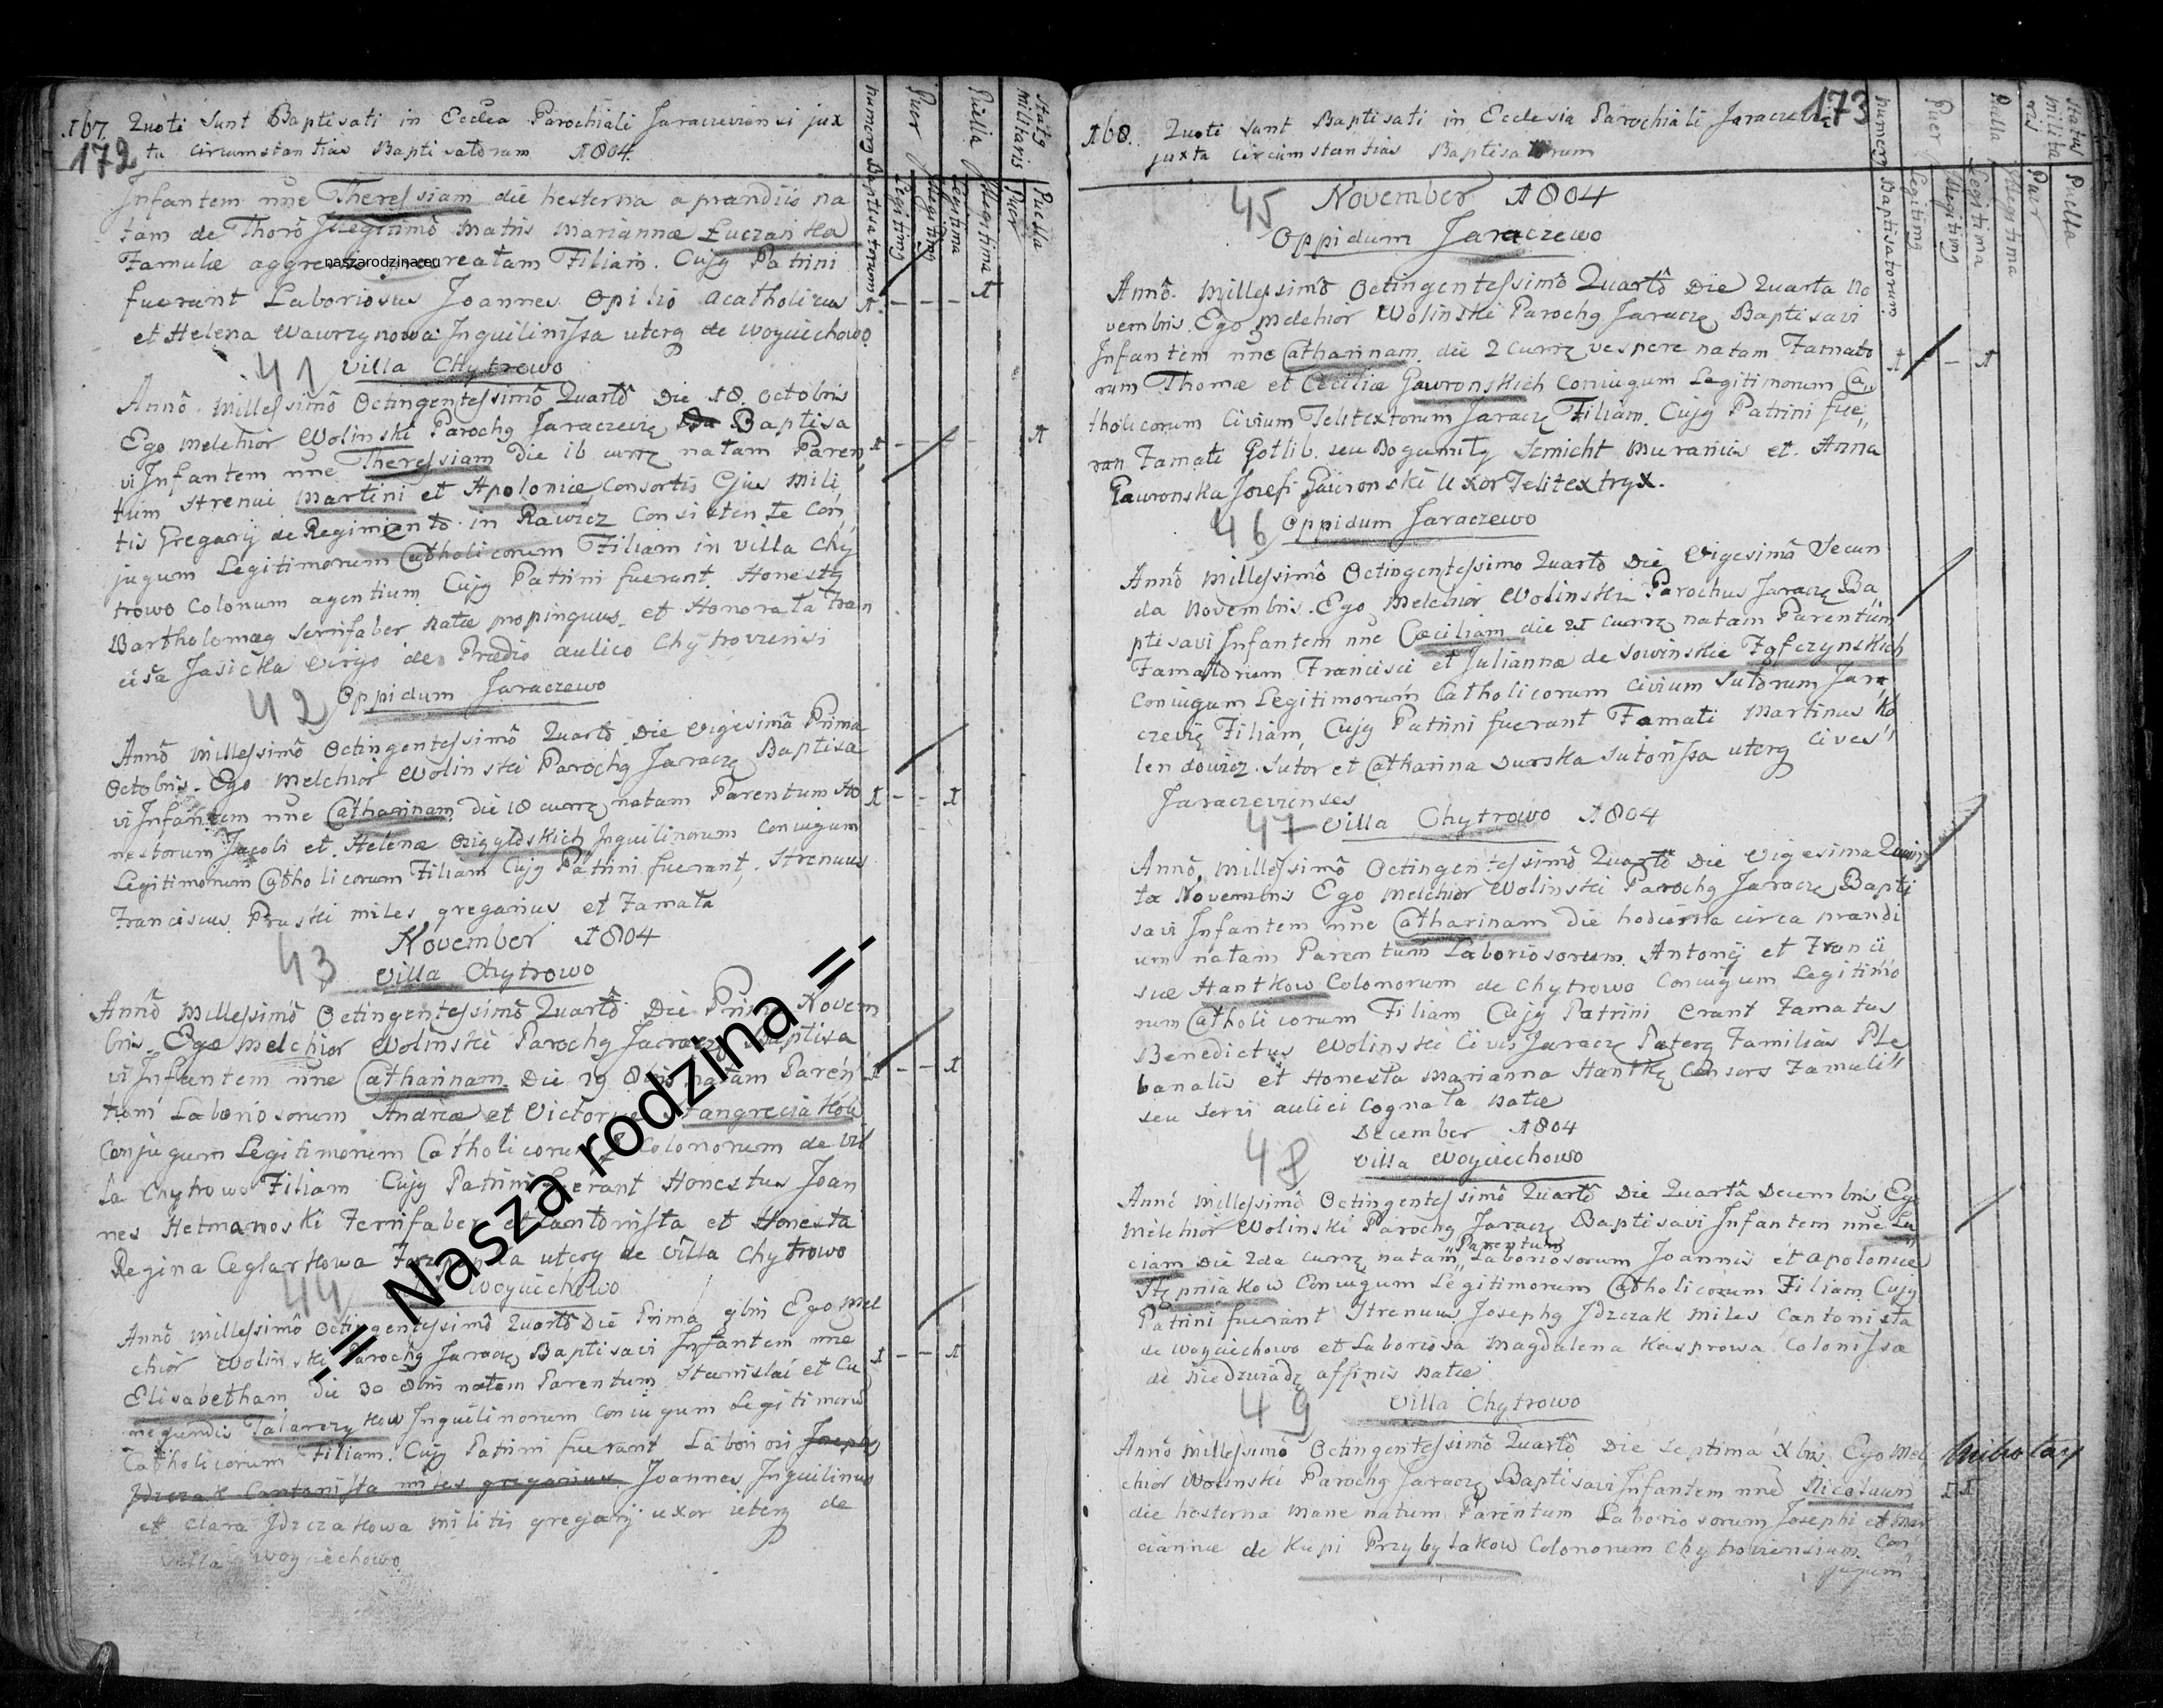 167. Quoti Sunt Baptisati in Ecclea Parochiali Jaraczeviensi jux
172 ta circumstantias Baptisatorum 1804.
numerg Baptisatorum
Puer Legitimg Illegitimg
Puella Legitima Illegitima
Statg militaris Puer Puella
Infantem nne Theressiam die hesterna a prandiis na
tam de Thorô Illegitimô Matris Mariannæ Łuczanska
Famulæ Filiam. Cujg Patrini
naszarodzina.eu
fuerant Laboriosus Joannes Opilio acatholicus
et Helena Wawrzynowa Inquilinissa uterq de Woyciechowo
41 Villa Chytrowo
Annô Millessimô Octingentessimô Quartô Die 18. Octobris
Ego Melchior Wolinski Parochg Jaraczevię Baptisa
vi Infantem nne Theressiam die 16 currę natam Paren
tum strenui Martini et Apoloniæ Consortis Ejus Mili
tis Gregarij de Regimento in Rawicz Consistente Con
jugum Legitimorum Catholicorum Filiam in Villa Chy
trowo Colonum agentium Cujg Patrini fuerant. Honestg
Bartholomæg serrifaber natæ propinquus et Honorata Fran
cisa Jasicka Virgo de Prædio aulico Chytroviensi
42 Oppidum Jaraczewo
Annô Millessimô Octingentessimô Quartô Die Vigesimâ Prima
Octobris. Ego Melchior Wolinski Parochg Jaraczę Baptisa
vi Infantem nne Catharinam die 18 currę natam Parentum Ho
nestorum Jacobi et Helenæ Inquilinorum Coniugum
Legitimorum Catholicorum Filiam Cujg Patrini fuerant. Strenuus
Franciscus Pruski miles gregarius et Famata
November 1804
43 Villa Chytrowo
Annô Millessimô Octingentessimô Quartô Die Prima Novem
bris. Ego Melchior Wolinski Parochg Jaraczę Baptisa
vi Infantem nne Catharinam Die 29 8bris natam Paren
tum Laboriosorum Andreæ et Victoriæ
Conjugum Legitimorum Catholicorum Colonorum de Vil
la Chytrowo Filiam Cujg Patrini fuerant Honestus Joan
nes Hetmanoski Ferrifaber et Cantonista et Honesta
Regina Ceglarkowa uterq de Villa Chytrowo
44 Woyciechowo
Annô Millessimô Octingentessimô Quartô Die Prima 9bris Ego Mel
chior Wolinski Parochg Jaraczę Baptisavi Infantem nne
Elisabetham die 30 8bris natam Parentum Stanislai et Cu
negundis Talarczykow Inquilinorum Coniugum Legitimorū
Catholicorum Filiam. Cujg Patrini fuerant Laboriosi Josephg
Jdzczak Cantonista miles gregarius Joannes Inquilinus
et Clara Jdzczakowa militis gregarij uxor uterq de
Villa Woyciechowo
-= Nasza rodzina =-
168. Quoti Sunt Baptisati in Ecclesia Parochiali 173
juxta circumstantias Baptisatorum
numerg Baptisatorum
Puer Legitimg Illegitimg
Puella Legitima Illegitima
Status militaris Puer Puella
45 November 1804
Oppidum Jaraczewo
Annô. Millessimô Octingentessimô Quartô Die Quarta No
vembris. Ego Melchior Wolinski Parochg Jaraczę Baptisavi
Infantem nne Catharinam die 2 currę vespere natam Famato
rum Thomæ et Ceciliæ Gawronskich Coniugum Legitimorum Ca
tholicorum Civium Telitextorum Jaraczę Filiam. Cujg Patrini fue
ran Famati Gotlib seu Bogumilg Semicht Murarius et Anna
Gawronska Josefi Gawronski Uxor Telitextryx.
46 Oppidum Jaraczewo
Annô Millessimô Octingentessimo Quartô Die Vigesimâ Secun
da Novembris. Ego Melchior Wolinski Parochus Jaraczę Ba
ptisavi Infantem nne Cæciliam die 21 currę natam Parentum
Famatorum Francisci et Juliannæ de Sowinskie
Coniugum Legitimorum Catholicorum Civium Sutorum Jara
czevię Filiam, Cujg Patrini fuerant Famati Martinus Ko
lendowicz Sutor et Catharina Durska Sutorissa uterq Cives
Jaraczevienses
47 Villa Chytrowo 1804
Annô, Millessimô Octingentessimô Quartô Die Vigesima Quin
ta Novembris Ego Melchior Wolinski Parochg Jaraczę Bapti
savi Infantem nne Catharinam die hodierna circa prandi
um natam Parentum Laboriosorum Antonij et Franci
scæ Hantkow Colonorum de Chytrowo Coniugum Legitimo
rum Catholicorum Filiam Cujg Patrini erant Famatus
Benedictus Wolinski Civis Jaraczę Paterg Familias Ple
banalis et Honesta Marianna Hantkę Consors Famuli
seu servi aulici Cognata natæ
December 1804
48 Villa Woyciechowo
Annô Millessimô Octingentessimô Quartô Die Quartâ Decembris Ego
Melchior Wolinski Parochg Jaraczę Baptisavi Infantem nne Lu
ciam Die 2da currę natam Parentum Laboriosorum Joannis et Apoloniæ
Stępniakow Coniugum Legitimorum Catholicorum Filiam Cujg
Patrini fuerant Strenuus Josephg Jdzczak Miles Cantonista
de Woyciechowo et Laboriosa Magdalena Kasprowa Colonissa
de Niedzwiadę affinis natæ
49 Villa Chytrowo
Annô Millessimô Octingentessimô Quartô Die Septima Xbris. Ego Mel
chior Wolinski Parochg Jaraczę Baptisavi Infantem nne Nicolaum
Mikołay
die hesterna mane natum Parentum Laboriosorum Josephi et Mar
ciannæ de Kupi Przybyłakow Colonorum Chytroviensium Con
jugum